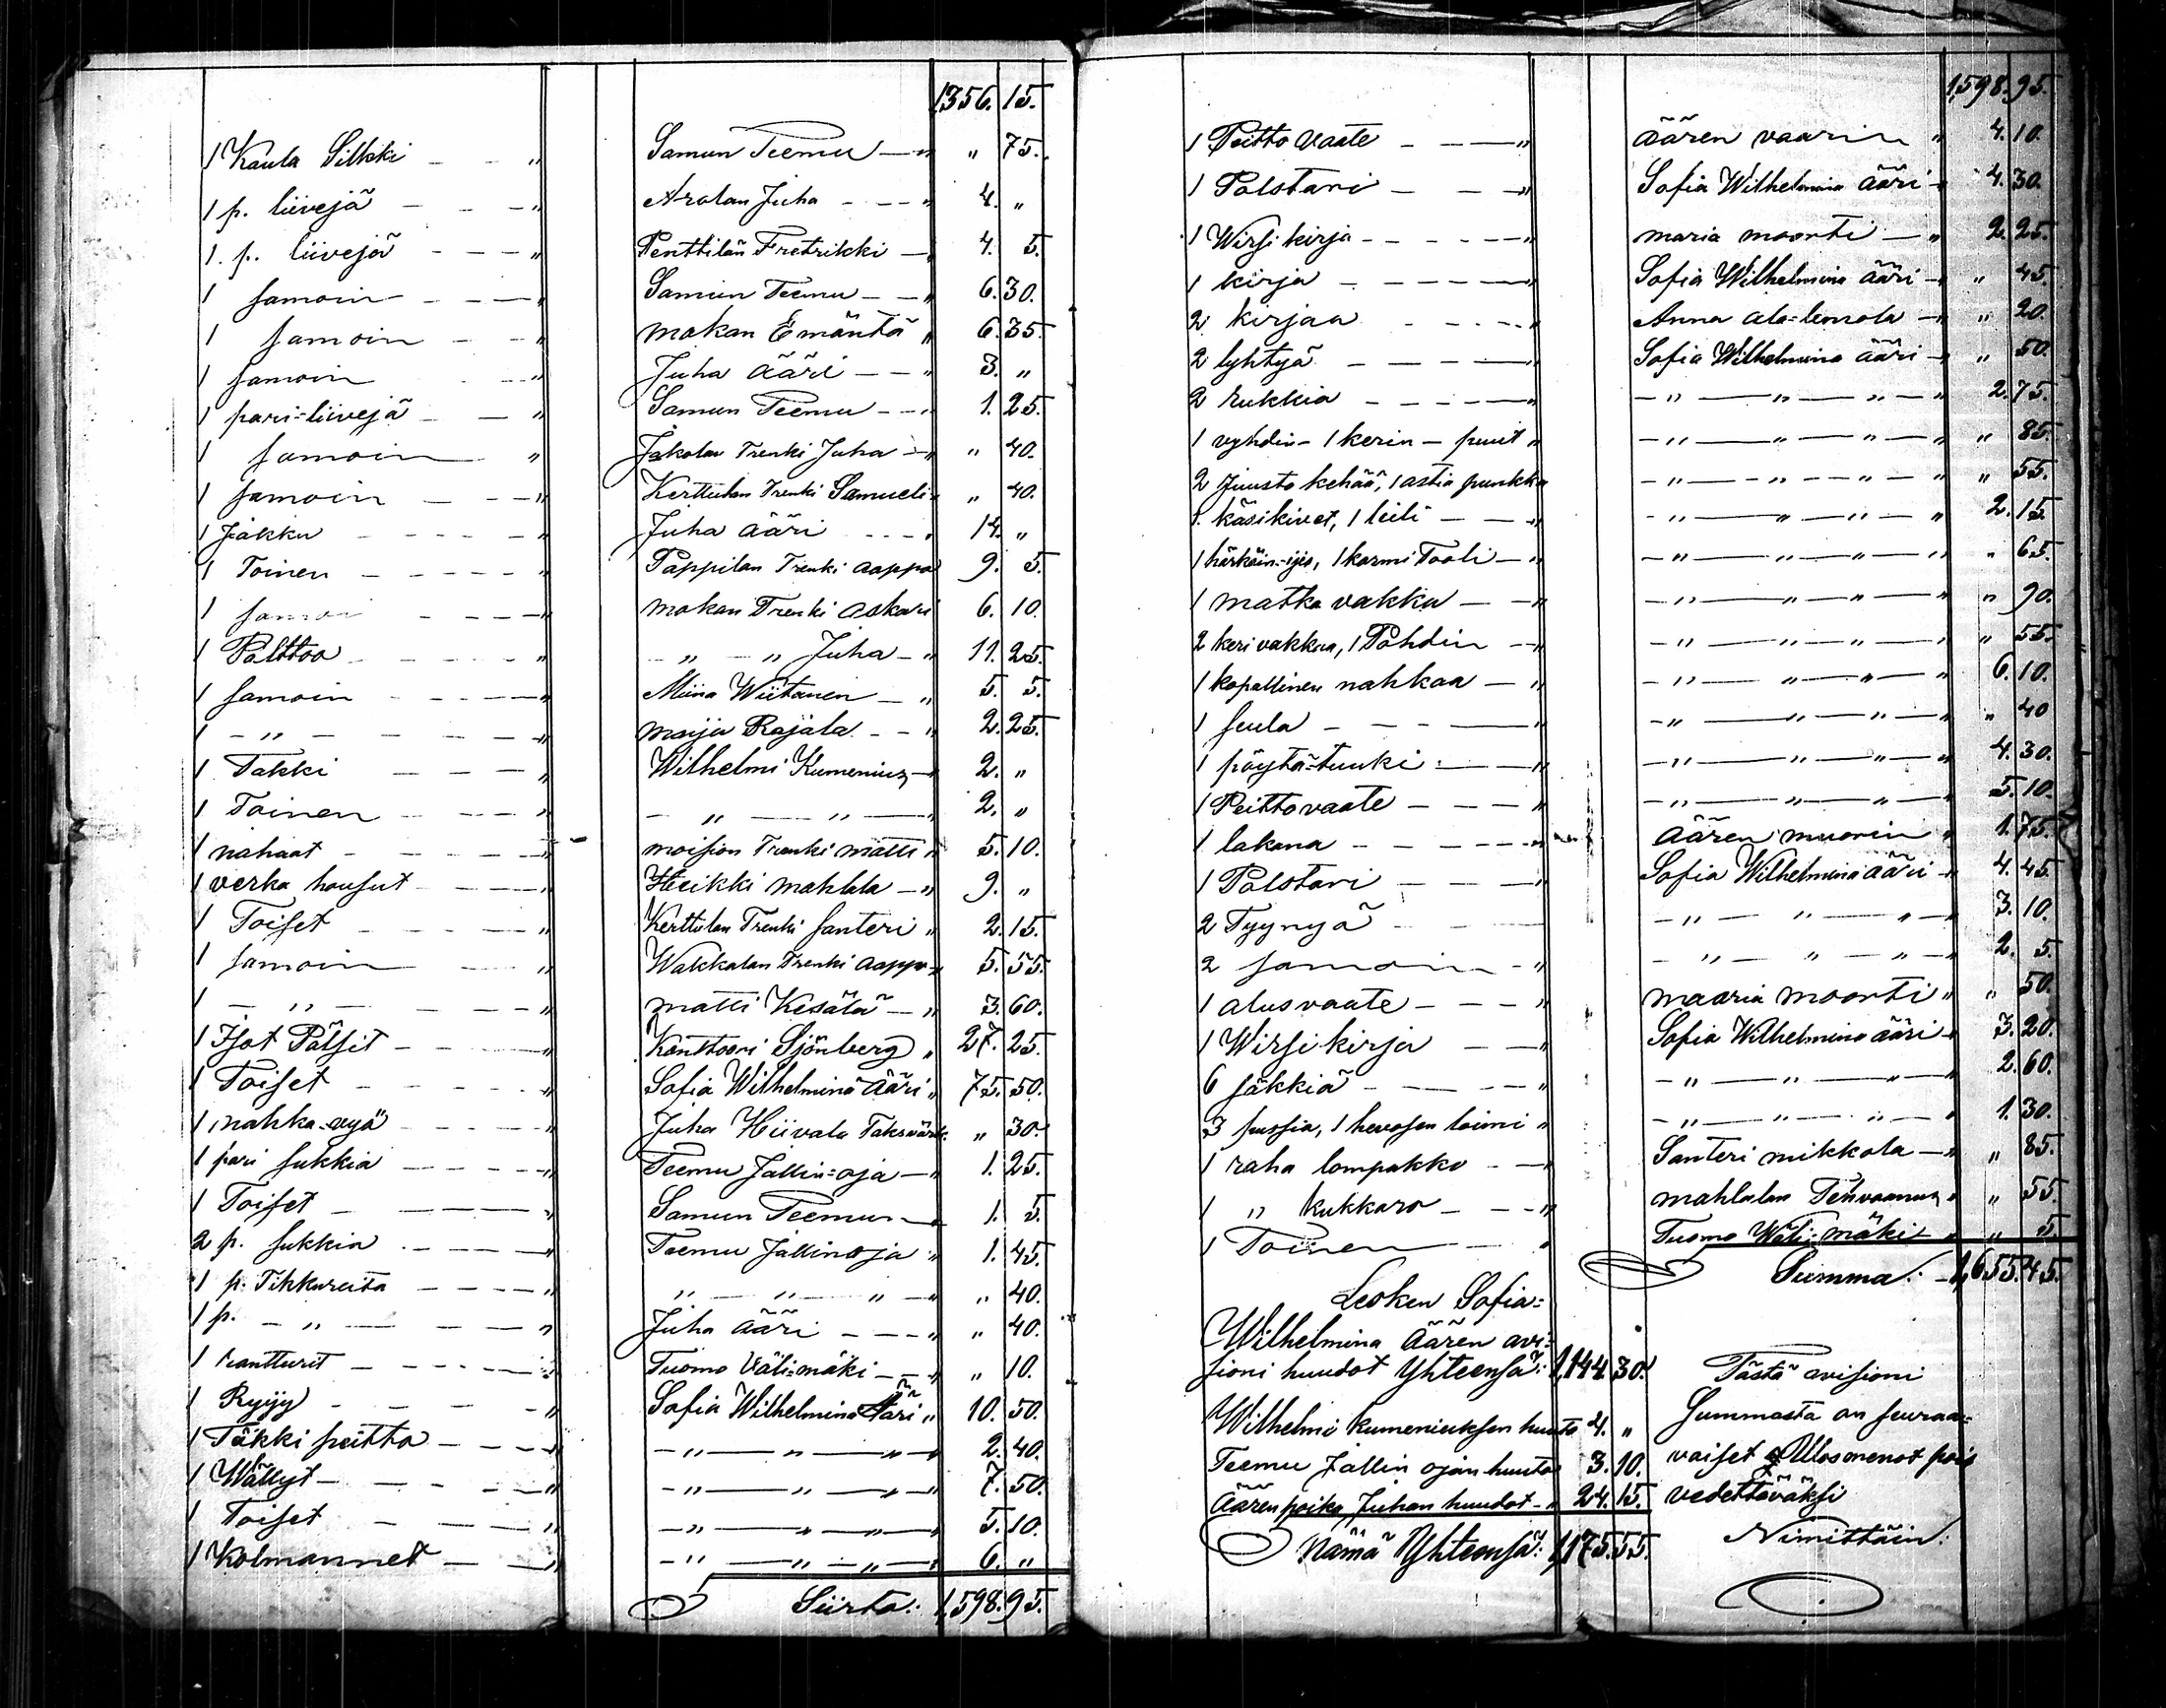 1356. 15.
1 Kaula Silkki — — „ Samun Teemu — „ „ 75.
1 p. liivejä — — — „ Arolan Juha — — — „ 4. „
1. p. liivejä — — — „ Penttilän Fretrikki — „ 4. 5.
1 samoin — — — — „ Samun Teemu — — „ 6. 30.
1 samoin — — „ mokan Emäntä „ 6. 35.
1 samoin — — „ Juha ääri — — „ 3. „
1 pari=liivejä — — „ Samun Teemu — — „ 1. 25.
1 samoin — „ Jakolan Trenki Juha — „ „ 40.
1 samoin — — — „ Kerttulan Trenki Samueli „ „ 40.
1 Jakku — — — — „ Juha ääri — — — „ 14. „
1 Toinen — — — — — „ Pappilan Trenki aappo 9. 5.
1 samoi — — — „ mokan Trenki Oskari 6. 10.
1 Palttoo — — — — „ — „ — „ Juha — „ 11. 25.
1 samoin — — — — „ Miina Wiitanen — „ 5. 5.
1 — „ — — — — „ maija Rajala — — „ 2. 25.
1 Takki — — — „ Wilhelmi Kumenius — „ 2. „
1 Toinen — — — „ — „ — „ — 2. „
1 nahaat — — — — „ moision Trenki matti „ 5. 10.
1 verka housut — — — „ Heikki mahlala — „ 9. „
1 Toiset — — — — „ Kerttulan Trenki santeri „ 2. 15.
1 samoin — — — „ Wakkalan Trenki aappo „ 5. 55.
1 — „ — — — „ matti Kesälä — „ 3. 60.
1 Isot Pälsit — — — „ Konttoori Sjönberg „ 27. 25.
1 Toiset — — — — „ Sofia Wilhelmina ääri „ 75. 50.
1 nahka-vyö — — — — „ Juha Hiivala „ 30.
1 pari sukkia — — — — „ Teemu Jallin=oja — „ 1. 25.
1 Toiset — — — „ Samun Teemu — „ 1. 5.
2 p. sukkia — — — — „ Teemu Jallinoja „ 1. 45.
1 p. Tikkureita — — — „ „ — „ — „ — „ „ 40.
1 p. — „ — — — — „ Juha ääri — — — „ „ 40.
1 — — — — „ Tuomo Väli=mäki — — „ „ 10.
1 Ryijy — — — — „ Sofia Wilhelmina Ääri „ 10. 50.
1 Täkki peitto — — — „ — „ — „ — „ — „ 2. 40.
1 Wällyt — — — — „ — „ — „ — „ — „ 7. 50.
1 Toiset — — — „ — „ — „ — „ — „ 5. 10.
1 Kolmannet — — „ — „ — „ — „ — „ 6. „
Siirto: 1,598. 95.
1,598. 95.
1 Peitto vaate — — — „ äären vaarin „ 4. 10.
1 Polstari — — — „ Sofia Wilhelmina ääri „ 4. 30.
1 Wirsi kirja — — — — — „ maria moorti — „ 2. 25.
1 kirja — — — — — „ Sofia Wilhelmina ääri — „ „ 45.
2 kirjaa — — — — „ Anna ala=lemola — „ „ 20.
2 lyhtyä — — — — „ Sofia Wilhelmina ääri — „ „ 50.
2 rukkia — — — — — „ — „ — „ — „ — „ 2. 75.
1 vyhdin — 1 kerin — puut „ — „ — „ — „ — „ „ 85.
2 Juusto kehää, 1 astia punkka — „ — „ — „ — „ „ 55.
1. käsikivet, 1 leili — — „ — „ — „ — „ — „ 2. 15.
1 , 1 karmi Tooli — „ — „ — „ — „ — „ „ 65.
1 matka vakka — — „ — „ — „ — „ — „ „ 90.
2 keri vakkaa, 1 Pohdin — „ — „ — „ — „ — „ „ 55.
1 kopallinen nahkaa — „ — „ — „ — „ — „ 6. 10.
1 seula — — — — „ — „ — „ — „ — „ „ 40
1 pöytä=tuuki — — „ — „ — „ — „ — „ 4. 30.
1 Peittovaate — — — „ — „ — „ — „ — „ 5. 10.
1 lakana — — — — — „ äären muorin „ 1. 75.
1 Polstari — — — „ Sofia Wilhelmina ääri „ 4. 45.
2 Tyynyä — — — — „ — „ — „ — „ 3. 10.
2 samoin — „ — „ — „ — „ — „ 2. 5.
1 alusvaate — — — „ maaria moorti „ „ 50.
1 Wirsi kirja — — „ Sofia Wilhelmina ääri „ 3. 20.
6 säkkiä — — — — „ — „ — „ — „ — „ 2. 60.
3 pussia, 1 hevosen loimi „ — „ — „ — „ — „ 1. 30.
1 raha lompakko — — „ Santeri mikkola — „ „ 85.
1 „ kukkaro — — — „ mahlalan „ „ 55.
1 Toinen — — „ Tuomo Wäli=mäki „ „ 5.
Summa: — 1,655. 45.
Lesken Sofia=
Wilhelmina Äären avi=
sioni huudot Yhteensä: 1,144. 30.
Wilhelmi kumeniuksen huuto 4. „
Teemu Jallin ojan huuto 3. 10.
Äären poika Juhan huudot — „ 24. 15.
Nämä Yhteensä: 1,175. 55.
Tästä avisioni
Summasta on seuraa=
vaiset Ulosmenot pois
vedettäväksi
Nimittäin: